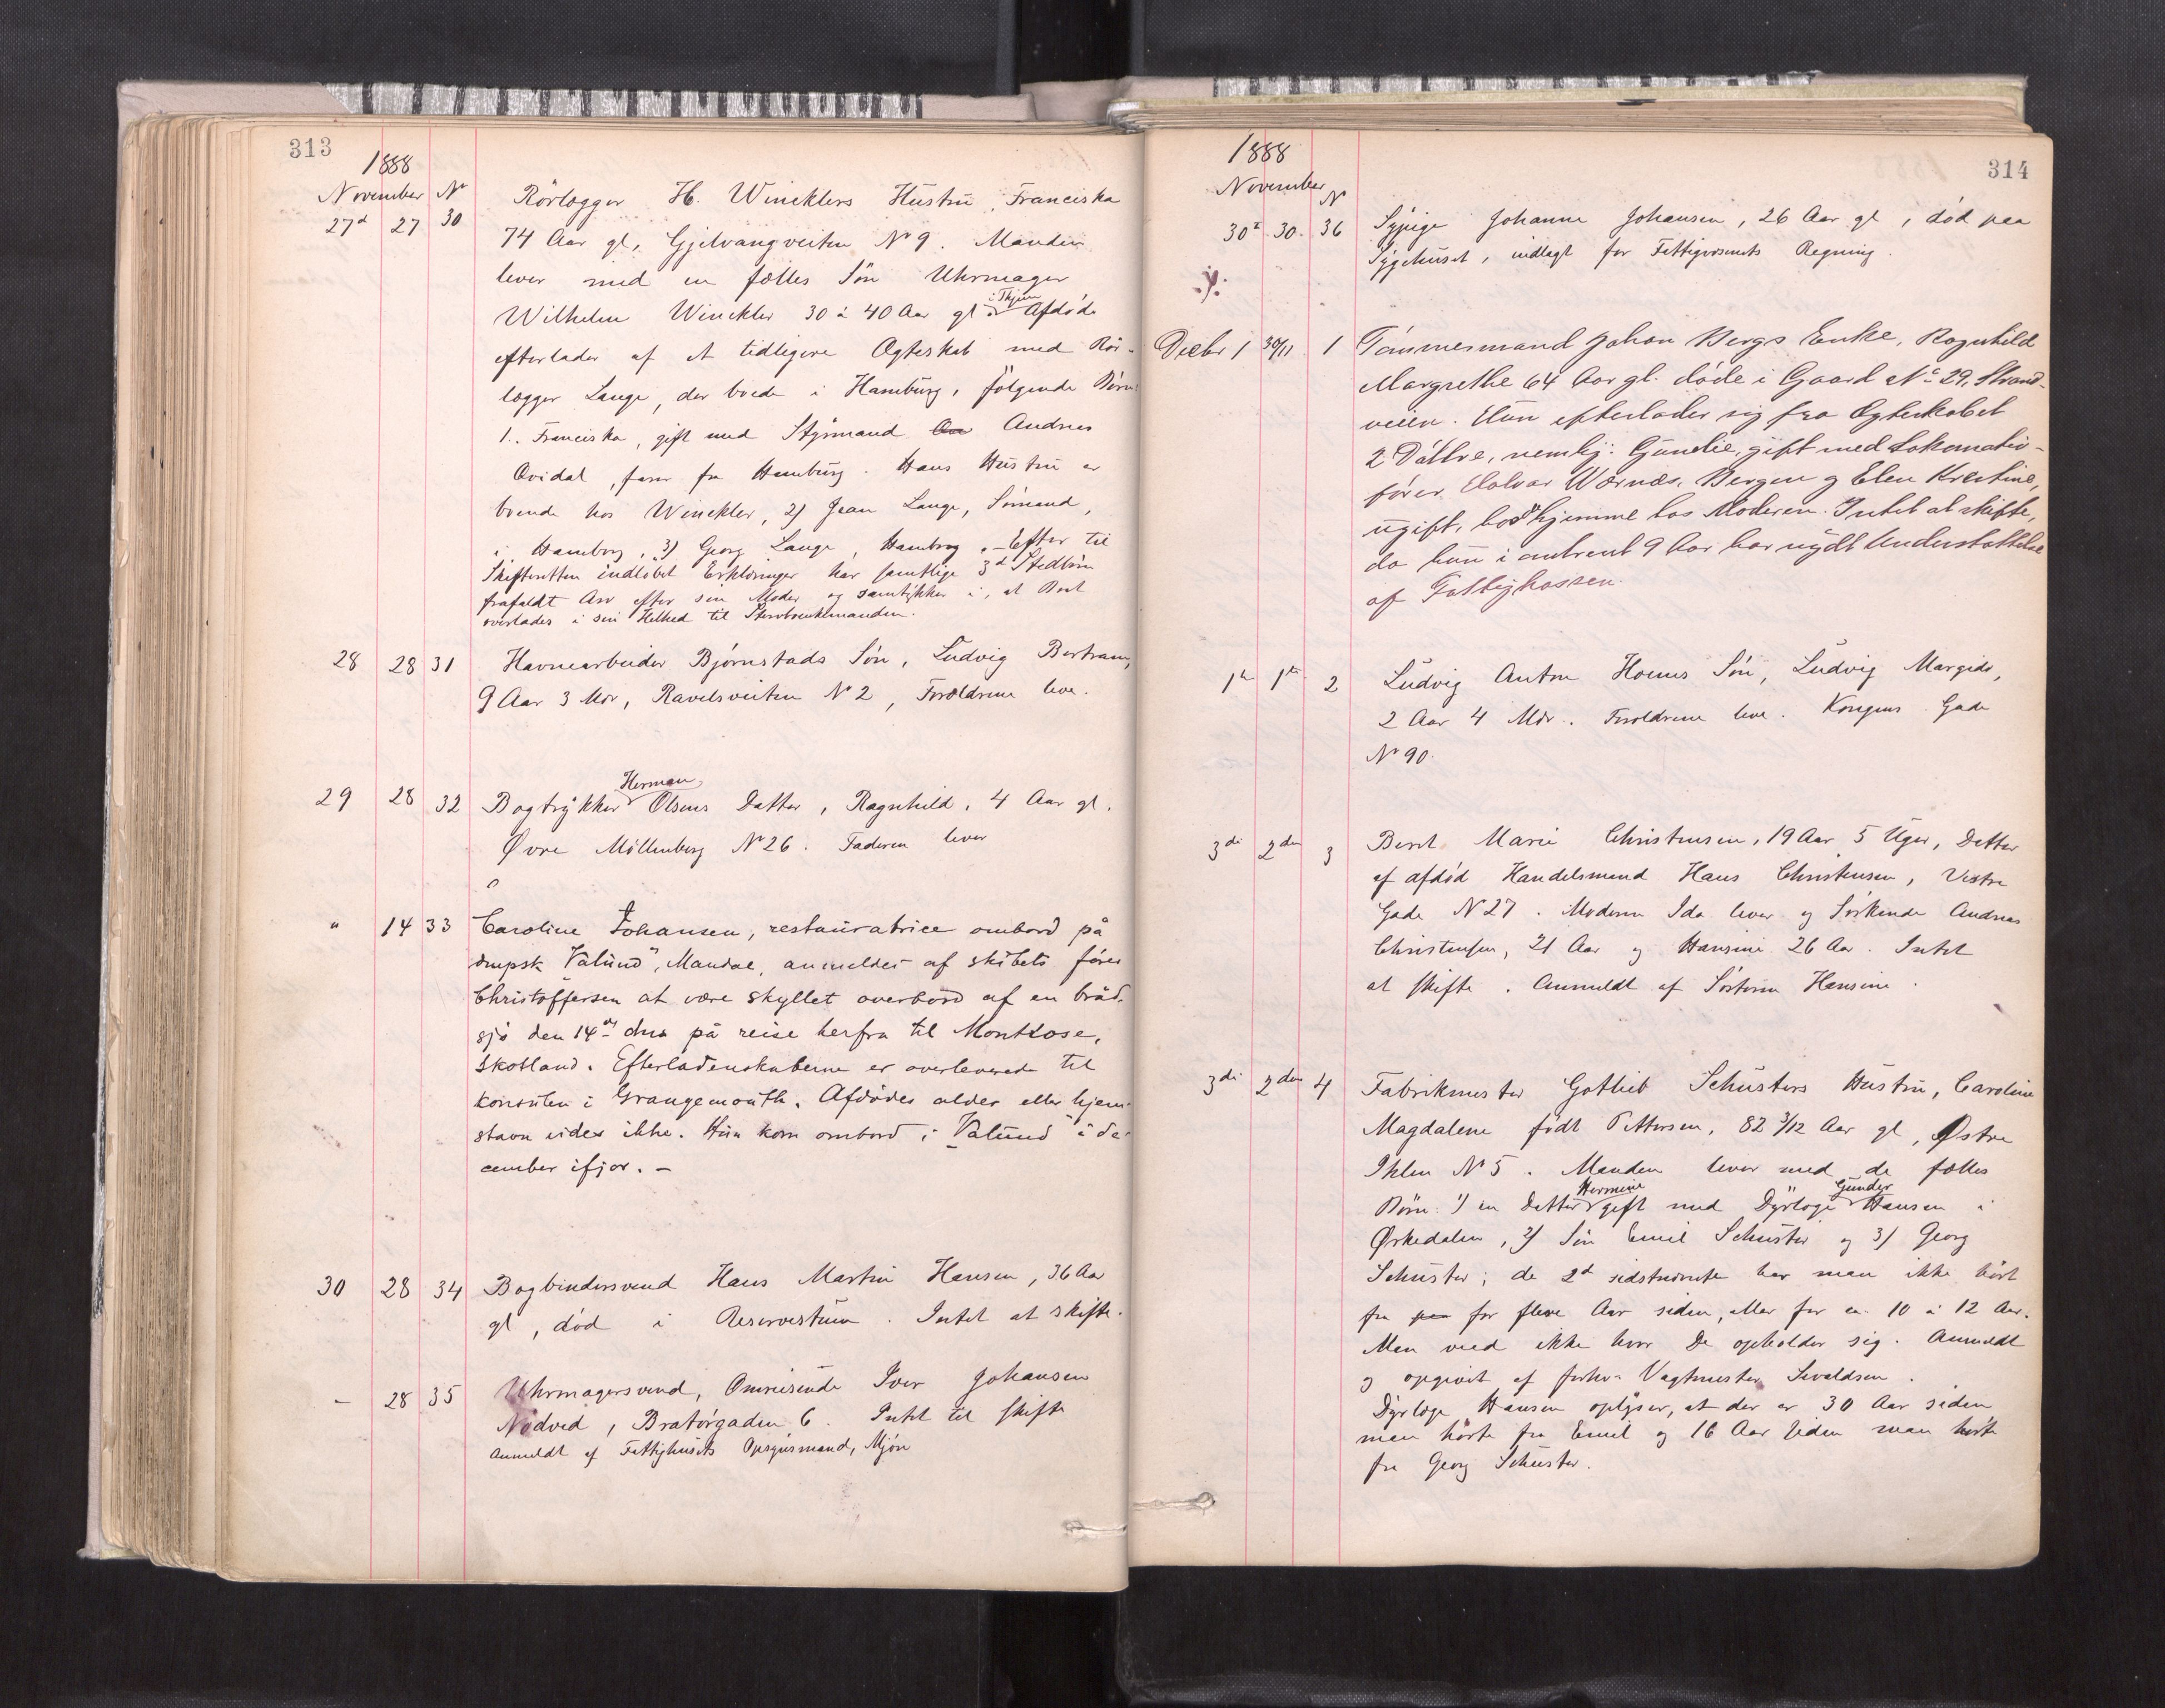 313
1888
November Nr
27d 27 30 Rörlægger H. Wincklers Hustru, Franciska
74 Aar gl, Gjelvangveiten Nr 9. Manden
lever med en fælles Sön Uhrmager
i Thjem
Wilhelm Winckler 30 à 40 Aar gl Afdöde
efterlader af et tidligere Ægteskab med Rör-
lægger Lange, der boede i Hamburg, følgende Börn:
1. Franciska, gift med Styrmand Andreas
Qvidal, farer fra Hamburg. Hans Hustru er
boende hos Winckler, 2) Jean Lange, Sömand,
i Hamborg, 3) Georg Lange, Hamborg. - Efter til
Skifteretten indløbet Erklæringer har samtlige 3d Stedbörn
frafaldt Arv efter sin Moder og samtykker i, at Boet
overlades i sin Helhed til Stervboenkemanden.
28 28 31 Havnearbeider Bjørnstads Sön, Ludvig Bertram,
9 Aar 3 Mdr, Ravelsveiten Nr 2, Forældrene leve.
Herman
29 28 32 Bogtrykker Olsens Datter, Ragnhild, 4 Aar gl.
Øvre Möllenberg Nr 26. Faderen lever
" 14 33 Caroline Johansen, restauratrice ombord på
dmpsk "Valund", Mandal, anmeldes af skibets förer
Christoffersen at være skyllet overbord af en bråd-
sjö den 14de dns på reise herfra til Montrose,
Skotland. Efterladenskaberne er overleverede til
konsulen i Grangemouth. Afdödes alder eller hjem-
stavn vides ikke. Hun kom ombord i "Valund" i de-
cember ifjor. -
30 28 34 Bogbindersvend Hans Martin Hansen, 36 Aar
gl, död i Reservestuen. Intet at skifte.
- 28 35 Uhrmagersvend, Omreisende Iver Johansen
Nödved, Bratörgaden 6. Intet til skifte
Anmeldt af Fattighusets Opsynsmand, Mjön
314
1888
November
Nr
30t 30 36 Sypige Johanne Johansen, 26 Aar gl, död paa
Sygehuset, indlagt for Fattigvæsenets Regning.
Decbr 1 30/11 1 Tömmermand Johan Bergs Enke, Ragnhild
Margrethe 64 Aar gl. döde i Gaard No 29, Strand-
veien. Hun efterlader sig fra Ægteskabet
2 Döttre, nemlig: Gunelie, gift med Lokomotiv-
förer Halvar Wærnæs, Bergen og Elen Kristine,
ugift, bor hjemme hos Moderen. Intet at skifte,
da hun i omtrent 9 Aar har nydt Understøttelse
af Fattigkassen.
1te 1te 2 Ludvig Anton Hoems Sön, Ludvig Margido,
2 Aar 4 Mdr. Forældrene leve. Kongens Gade
Nr 90.
3die 2den 3 Beret Marie Christensen, 19 Aar 5 Uger, Datter
af afdöd Handelsmand Hans Christensen, Vestre
Gade N 27. Moderen Ida lever og Söskende Andreas
Christensen, 21 Aar og Hansine 26 Aar. Intet
at skifte. Anmeldt af Söstren Hansine.
3die 2den 4 Fabrikmester Gotlieb Schusters Hustru, Caroline
Magdalene födt Pettersen, 82 3/12 Aar gl, Østre
Ihlen Nr 5. Manden lever med de fælles
Hermine Gunder
Börn: 1) en Datter gift med Dyrlæge Hansen i
Ørkedalen, 2) Sön Emil Schuster og 3) Georg
Schuster; de 2d sidstnævnte har man ikke hört
fra for flere Aar siden, eller for ca. 10 à 12 Aar.
Man veed ikke hvor De opholder sig. Anmeldt
og opgivet af forhv. Vagtmester Sivaldsen.
Dyrlæge Hansen oplyser, at der er 30 Aar siden
man hörte fra Emil og 16 Aar siden man hörte
fra Georg Schuster.